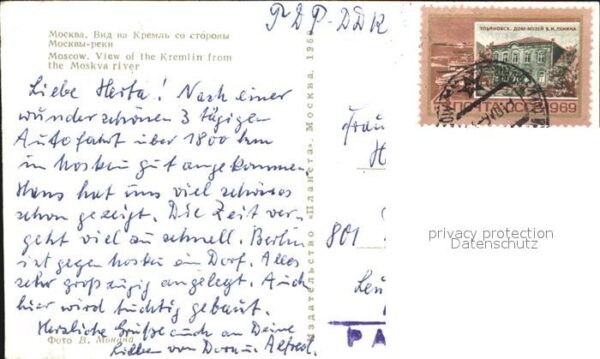 Москва. Вид на Кремль со стороны
Москвы-реки
Moscow. View of the Kremlin from
the Moskva river
Liebe Herta! Nach einer
wunderschönen 3 tägigen
Autofahrt über 1800 km
in Moskau gut angekommen.
Hans hat uns viel schönes
schon gezeigt. Die Zeit ver-
geht viel zu schnell. Berlin
ist gegen Moskau ein Dorf. Alles
sehr großzügig angelegt. Auch
hier wird tüchtig gebaut.
Herzliche Grüße auch an Deine
Lieben von Dora u. Alfred.
Фото В.
Издательство «Планета». Москва. 196
ГДР-DDR
УЛЬЯНОВСК. ДОМ-МУЗЕЙ В.И.ЛЕНИНА
ПОЧТА СССР 1969
Frau
H
801
privacy protection
Datenschutz